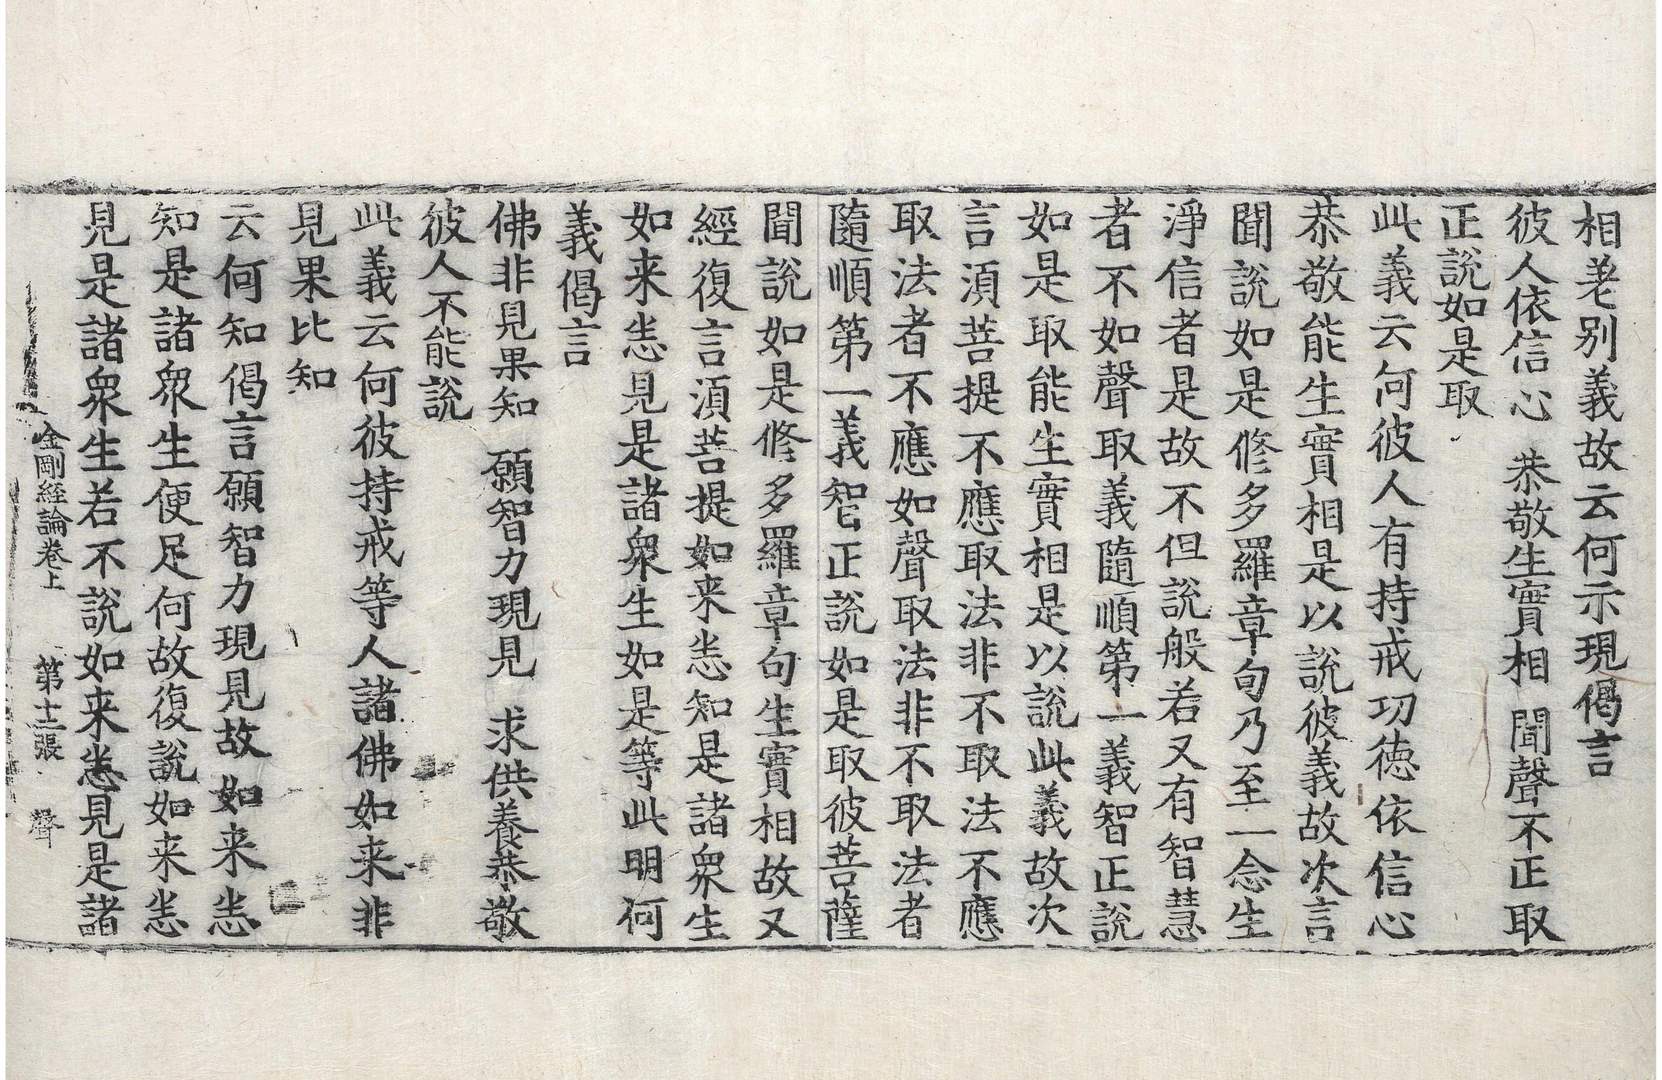 相差别義故云何示現偈言
彼人依信心 恭敬生實相 聞聲不正取
正說如是取
此義云何彼人有持戒功徳依信心
恭敬能生實相是以說彼義故次言
聞說如是修多羅章句乃至一念生
淨信者是故不但說般若又有智慧
者不如聲取義隨順第一義智正說
如是取能生實相是以說此義故次
言湏菩提不應取法非不取法不應
取法者不應如聲取法非不取法者
隨順第一義智正說如是取彼菩薩
聞說如是修多羅章句生實相故又
經復言湏菩提如来悉知是諸衆生
如来悉見是諸衆生如是等此明何
義偈言
佛非見果知 願智力現見 求供養恭敬
彼人不能說
此義云何彼持戒等人諸佛如来非
見果比知
云何知偈言願智力現見故如来悉
知是諸衆生便足何故復說如来悉
見是諸衆生若不說如来悉見是諸
金剛経論卷上 第十二張 聲